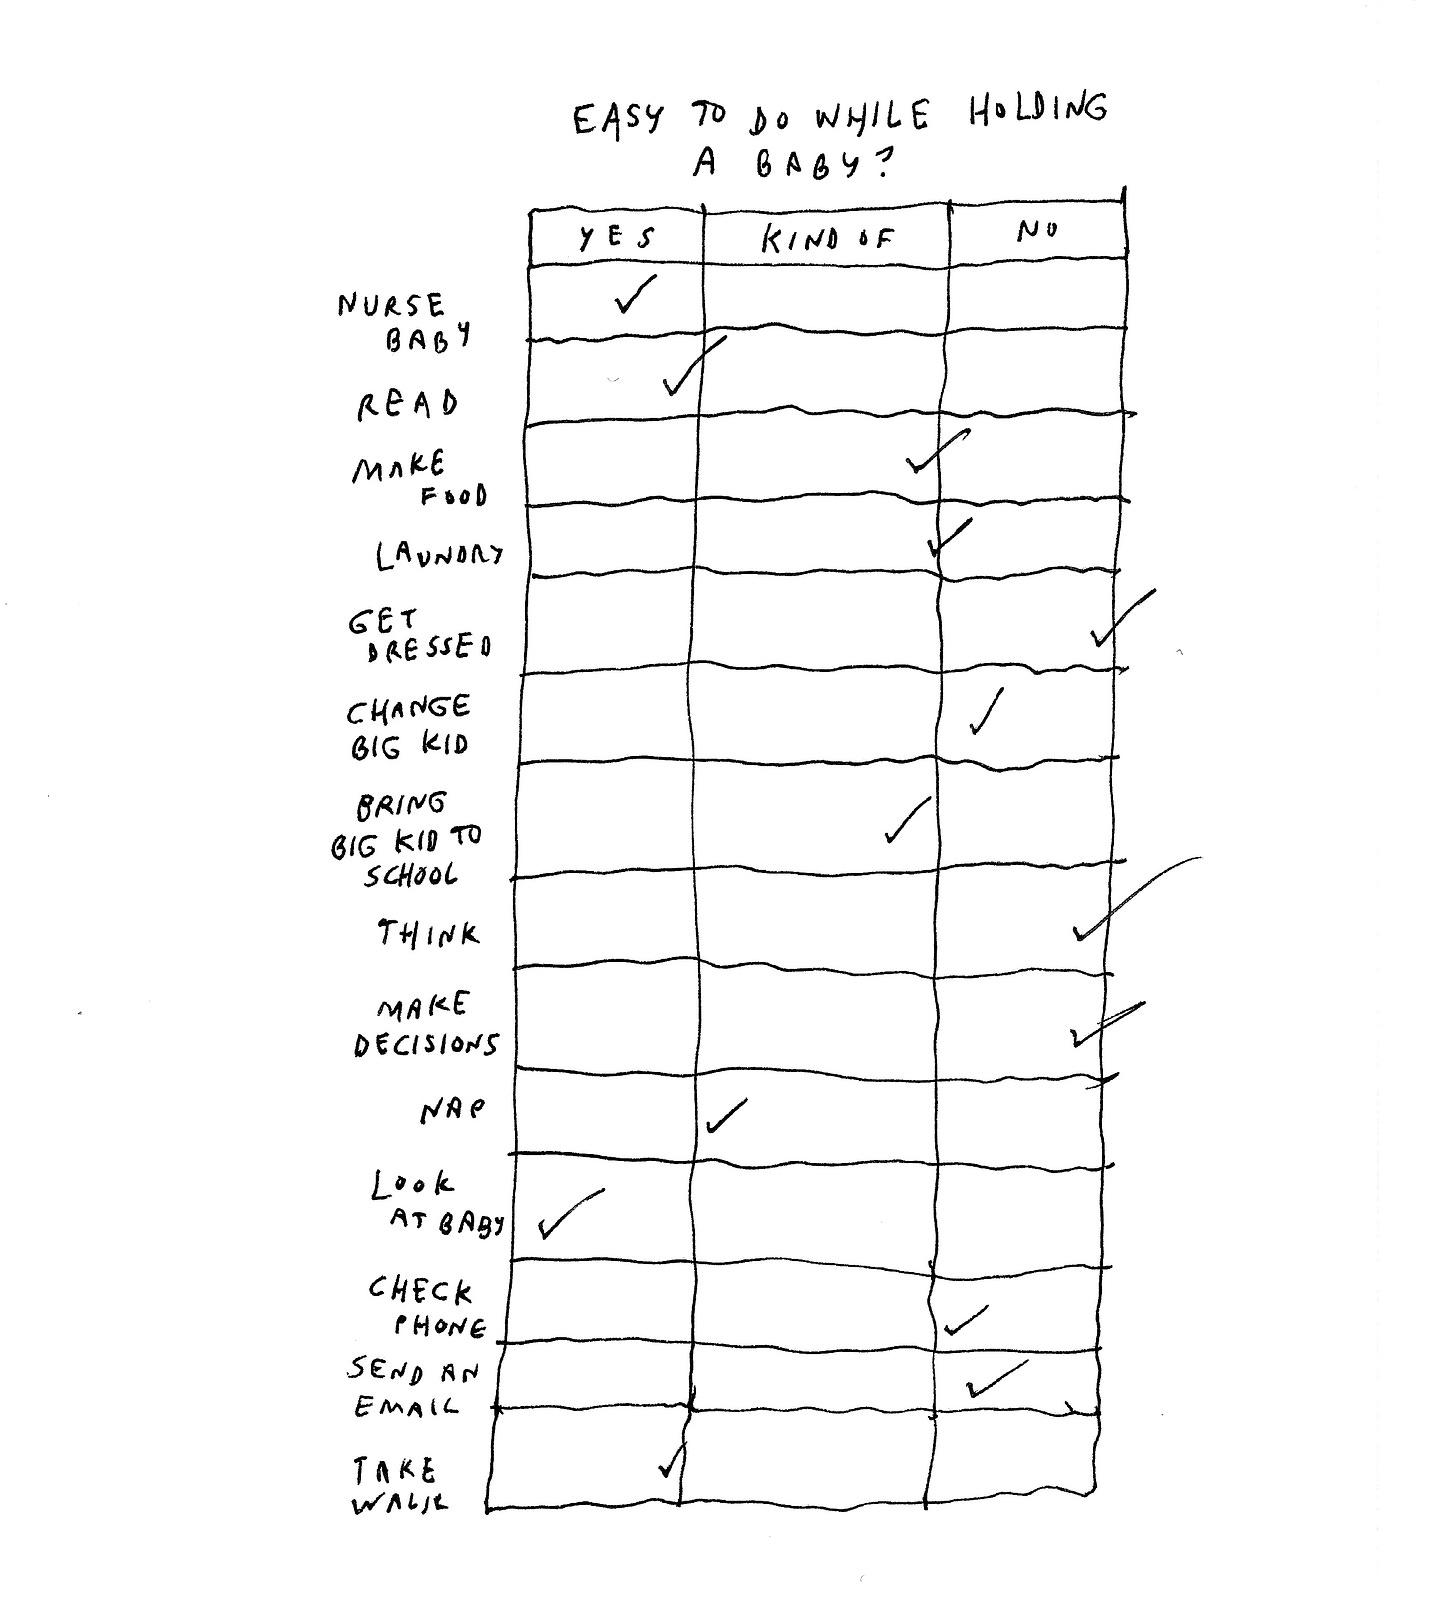 EASY TO DO WHILE HOLDING
A BABY?
YES KIND OF NO
NURSE
BABY
READ
MAKE
FOOD
LAUNDRY
GET
DRESSED
CHANGE
BIG KID
BRING
BIG KID TO
SCHOOL
THINK
MAKE
DECISIONS
NAP
LOOK
AT BABY
CHECK
PHONE
SEND AN
EMAIL
TAKE
WALK